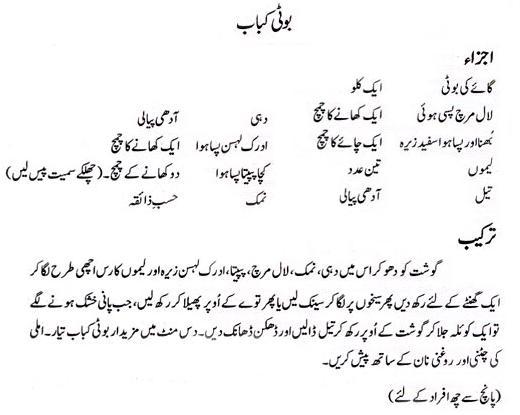 بوٹی کباب
اجزاء
گائے کی بوٹی ایک کلو
لال مرچ پسی ہوئی ایک کھانے کا چمچ دہی آدھی پیالی
بُھنا اور پسا ہوا سفید زیرہ ایک چائے کا چمچ ادرک لہسن پسا ہوا ایک کھانے کا چمچ
لیموں تین عدد کچا پپیتا پسا ہوا دو کھانے کے چمچ۔(چھلکے سمیت پیس لیں)
تیل آدھی پیالی نمک حسبِ ذائقہ
ترکیب
گوشت کو دھو کر اس میں دہی، نمک، لال مرچ، پپیتا، ادرک لہسن زیرہ اور لیموں کا رس اچھی طرح لگا کر
ایک گھنٹے کے لئے رکھ دیں پھر سیخوں پر لگا کر سینک لیں یا پھر توے کے اُوپر پھیلا کر رکھ لیں، جب پانی خشک ہونے لگے
تو ایک کوئلہ جلا کر گوشت کے اُوپر رکھ کر تیل ڈالیں اور ڈھکن ڈھانک دیں۔ دس منٹ میں مزیدار بوٹی کباب تیار۔ املی
کی چٹنی اور روغنی نان کے ساتھ پیش کریں۔
(پانچ سے چھ افراد کے لئے)